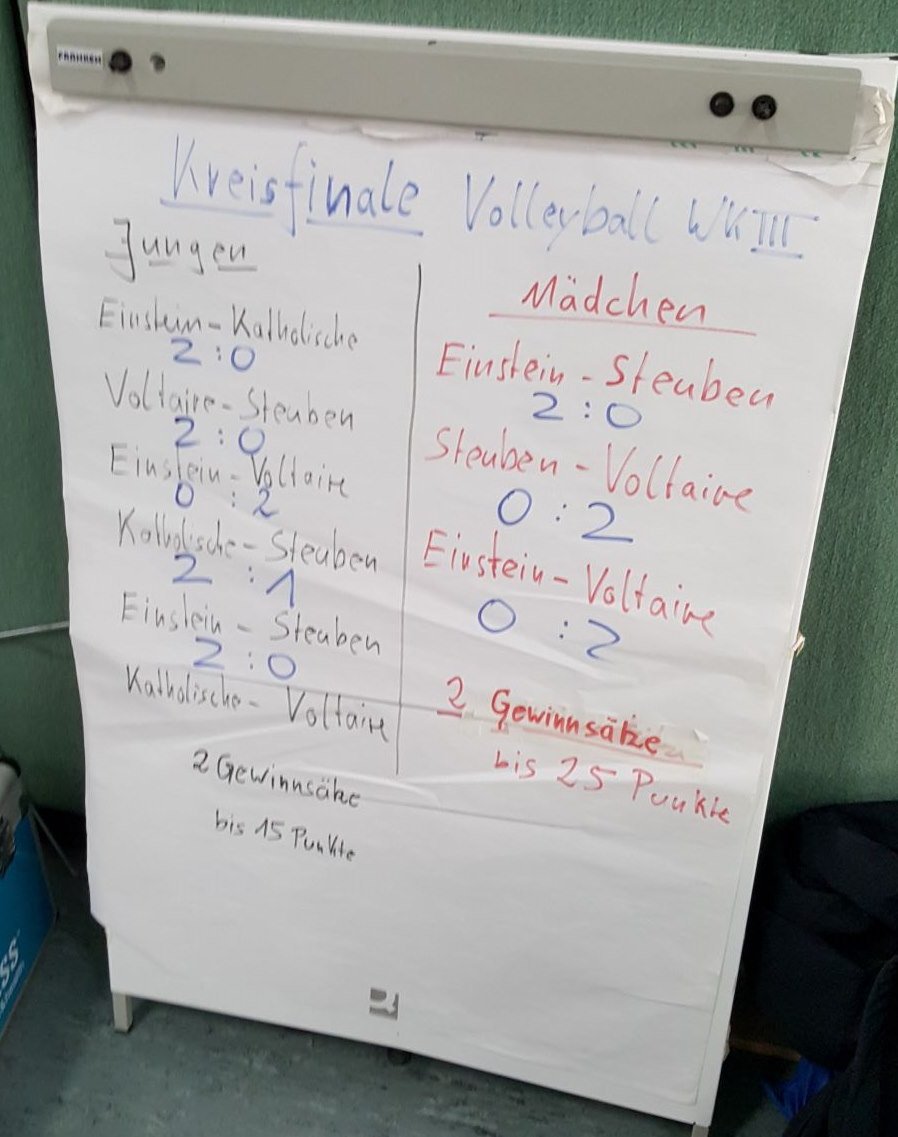 FRANKEN
Kreisfinale Volleyball WK III
Jungen
Einstein - Katholische
2 : 0
Voltaire - Steuben
2 : 0
Einstein - Voltaire
0 : 2
Katholische - Steuben
2 : 1
Einstein - Steuben
2 : 0
Katholische - Voltaire
2 Gewinnsätze
bis 15 Punkte
Mädchen
Einstein - Steuben
2 : 0
Steuben - Voltaire
0 : 2
Einstein - Voltaire
0 : 2
2 Gewinnsätze
bis 25 Punkte